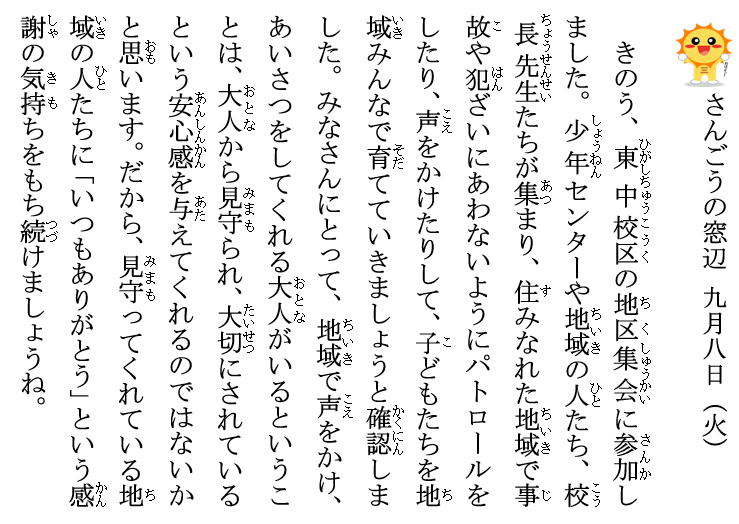 さんごうの窓辺 九月八日（火）
きのう、東中校区の地区集会に参加し
ました。少年センターや地域の人たち、校
長先生たちが集まり、住みなれた地域で事
故や犯ざいにあわないようにパトロールを
したり、声をかけたりして、子どもたちを地
域みんなで育てていきましょうと確認しま
した。みなさんにとって、地域で声をかけ、
あいさつをしてくれる大人がいるというこ
とは、大人から見守られ、大切にされている
という安心感を与えてくれるのではないか
と思います。だから、見守ってくれている地
域の人たちに「いつもありがとう」という感
謝の気持ちをもち続けましょうね。